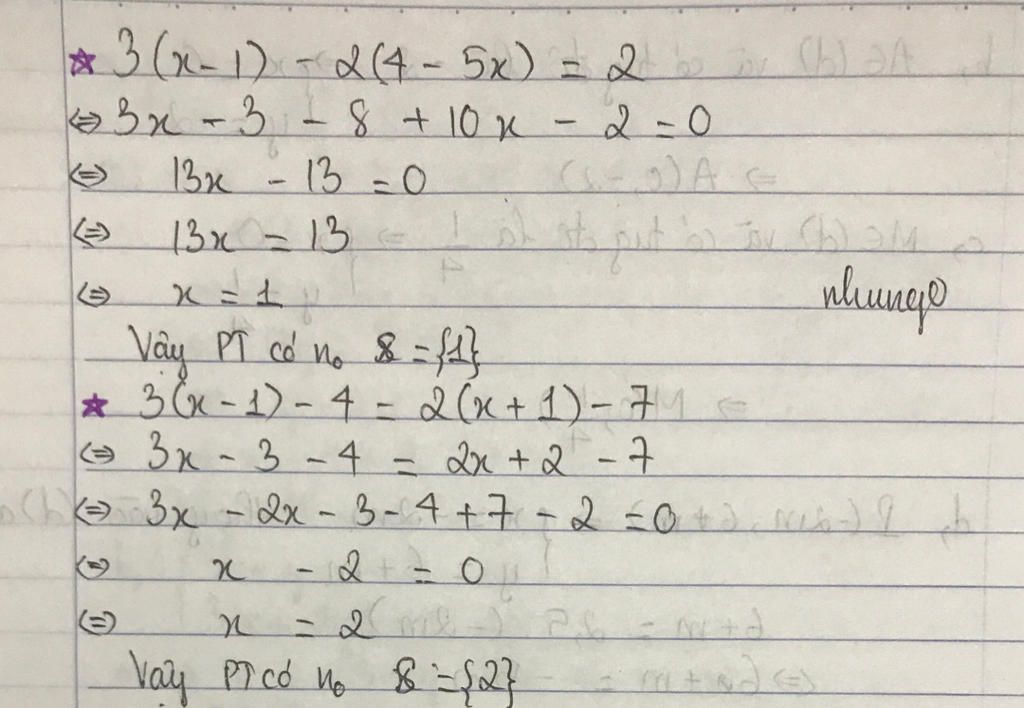 ☆ 3(x-1) - 2(4 - 5x) = 2
⇔ 3x - 3 - 8 + 10x - 2 = 0
⇔ 13x - 13 = 0
⇔ 13x = 13
⇔ x = 1
Vậy PT có n₀ S = {1}
☆ 3(x-1) - 4 = 2(x+1) - 7
⇔ 3x - 3 - 4 = 2x + 2 - 7
⇔ 3x - 2x - 3 - 4 + 7 - 2 = 0
⇔ x - 2 = 0
⇔ x = 2
Vậy PT có n₀ S = {2}